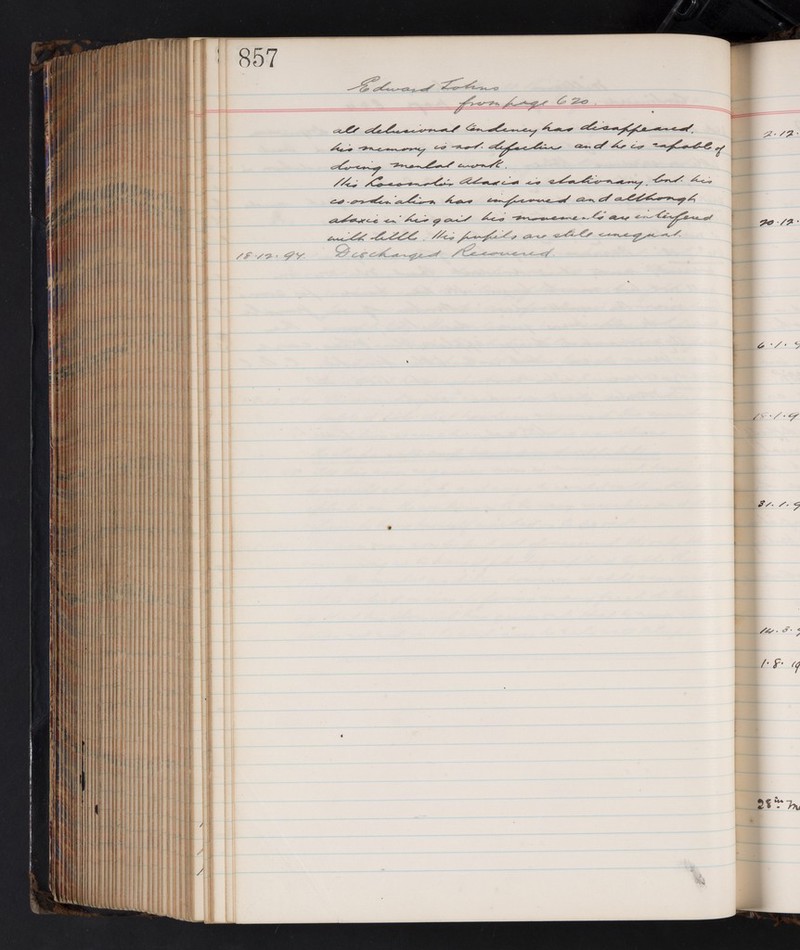 857
Edward Johns
from page 620.
all delusional tendency has disappeared.
his memory is not defective and he is capable of
doing mental work.
His Locomotor Ataxia is stationary, but his
co-ordination has improved and although
ataxic in his gait his movements are interfered
with little. His pupils are still unequal.
18.12.94. Discharged Recovered.
2.12.
20.12.
6.1.
31.1.9
14.3.
1.8.19
28th